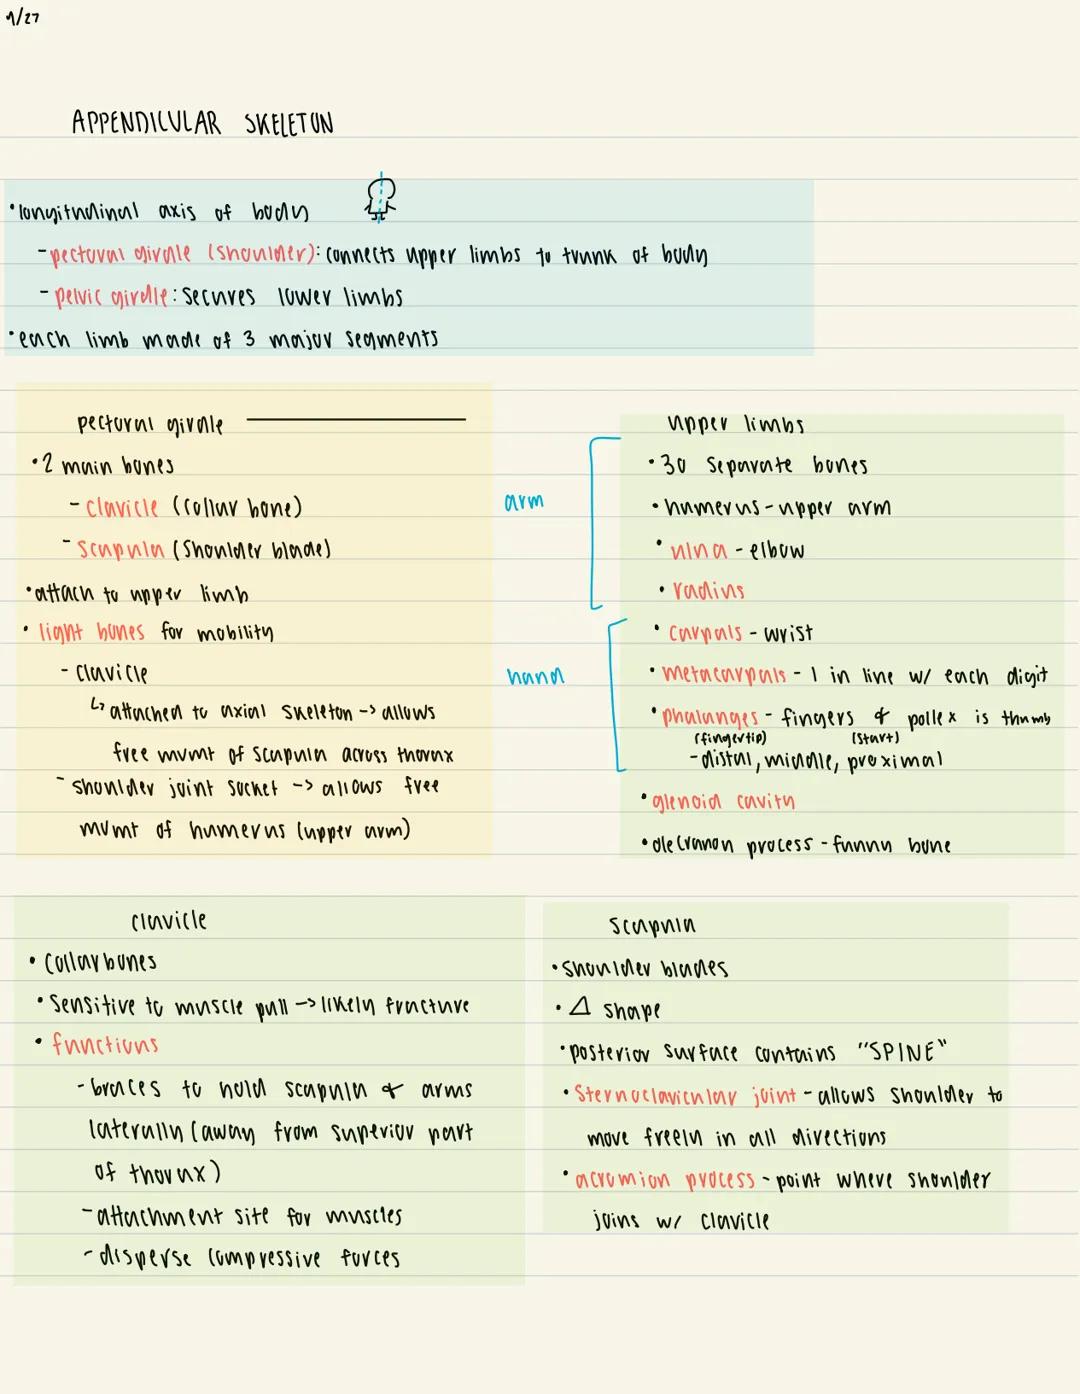 1/27
APPENDICULAR SKELETON
•longitudinal axis of body
-pectoral girdle (shoulder): connects upper limbs to trunk of body
-pelvic girdle: secures lower limbs
•each limb made of 3 major segments
pectoral girdle
•2 main bones
-clavicle (collar bone)
-scapula (shoulder blade)
•attach to upper limb
•light bones for mobility
-clavicle
↳ attached to axial skeleton -> allows
free mvmt of scapula across thorax
-shoulder joint socket -> allows free
mvmt of humerus (upper arm)
arm
hand
upper limbs
•30 separate bones
•humerus-upper arm
•ulna-elbow
•radius
•carpals-wrist
•metacarpals-1 in line w/ each digit
•phalanges-fingers & pollex is thumb
(fingertip) (start)
-distal, middle, proximal
•glenoid cavity
•olecranon process-funny bone
clavicle
•collarbones
•sensitive to muscle pull -> likely fracture
•functions
-braces to hold scapula & arms
laterally (away from superior part
of thorax)
-attachment site for muscles
-disperse compressive forces
scapula
•shoulder blades
•△ shape
•posterior surface contains "SPINE"
•sternoclavicular joint-allows shoulder to
move freely in all directions
•acromion process-point where shoulder
joins w/ clavicle